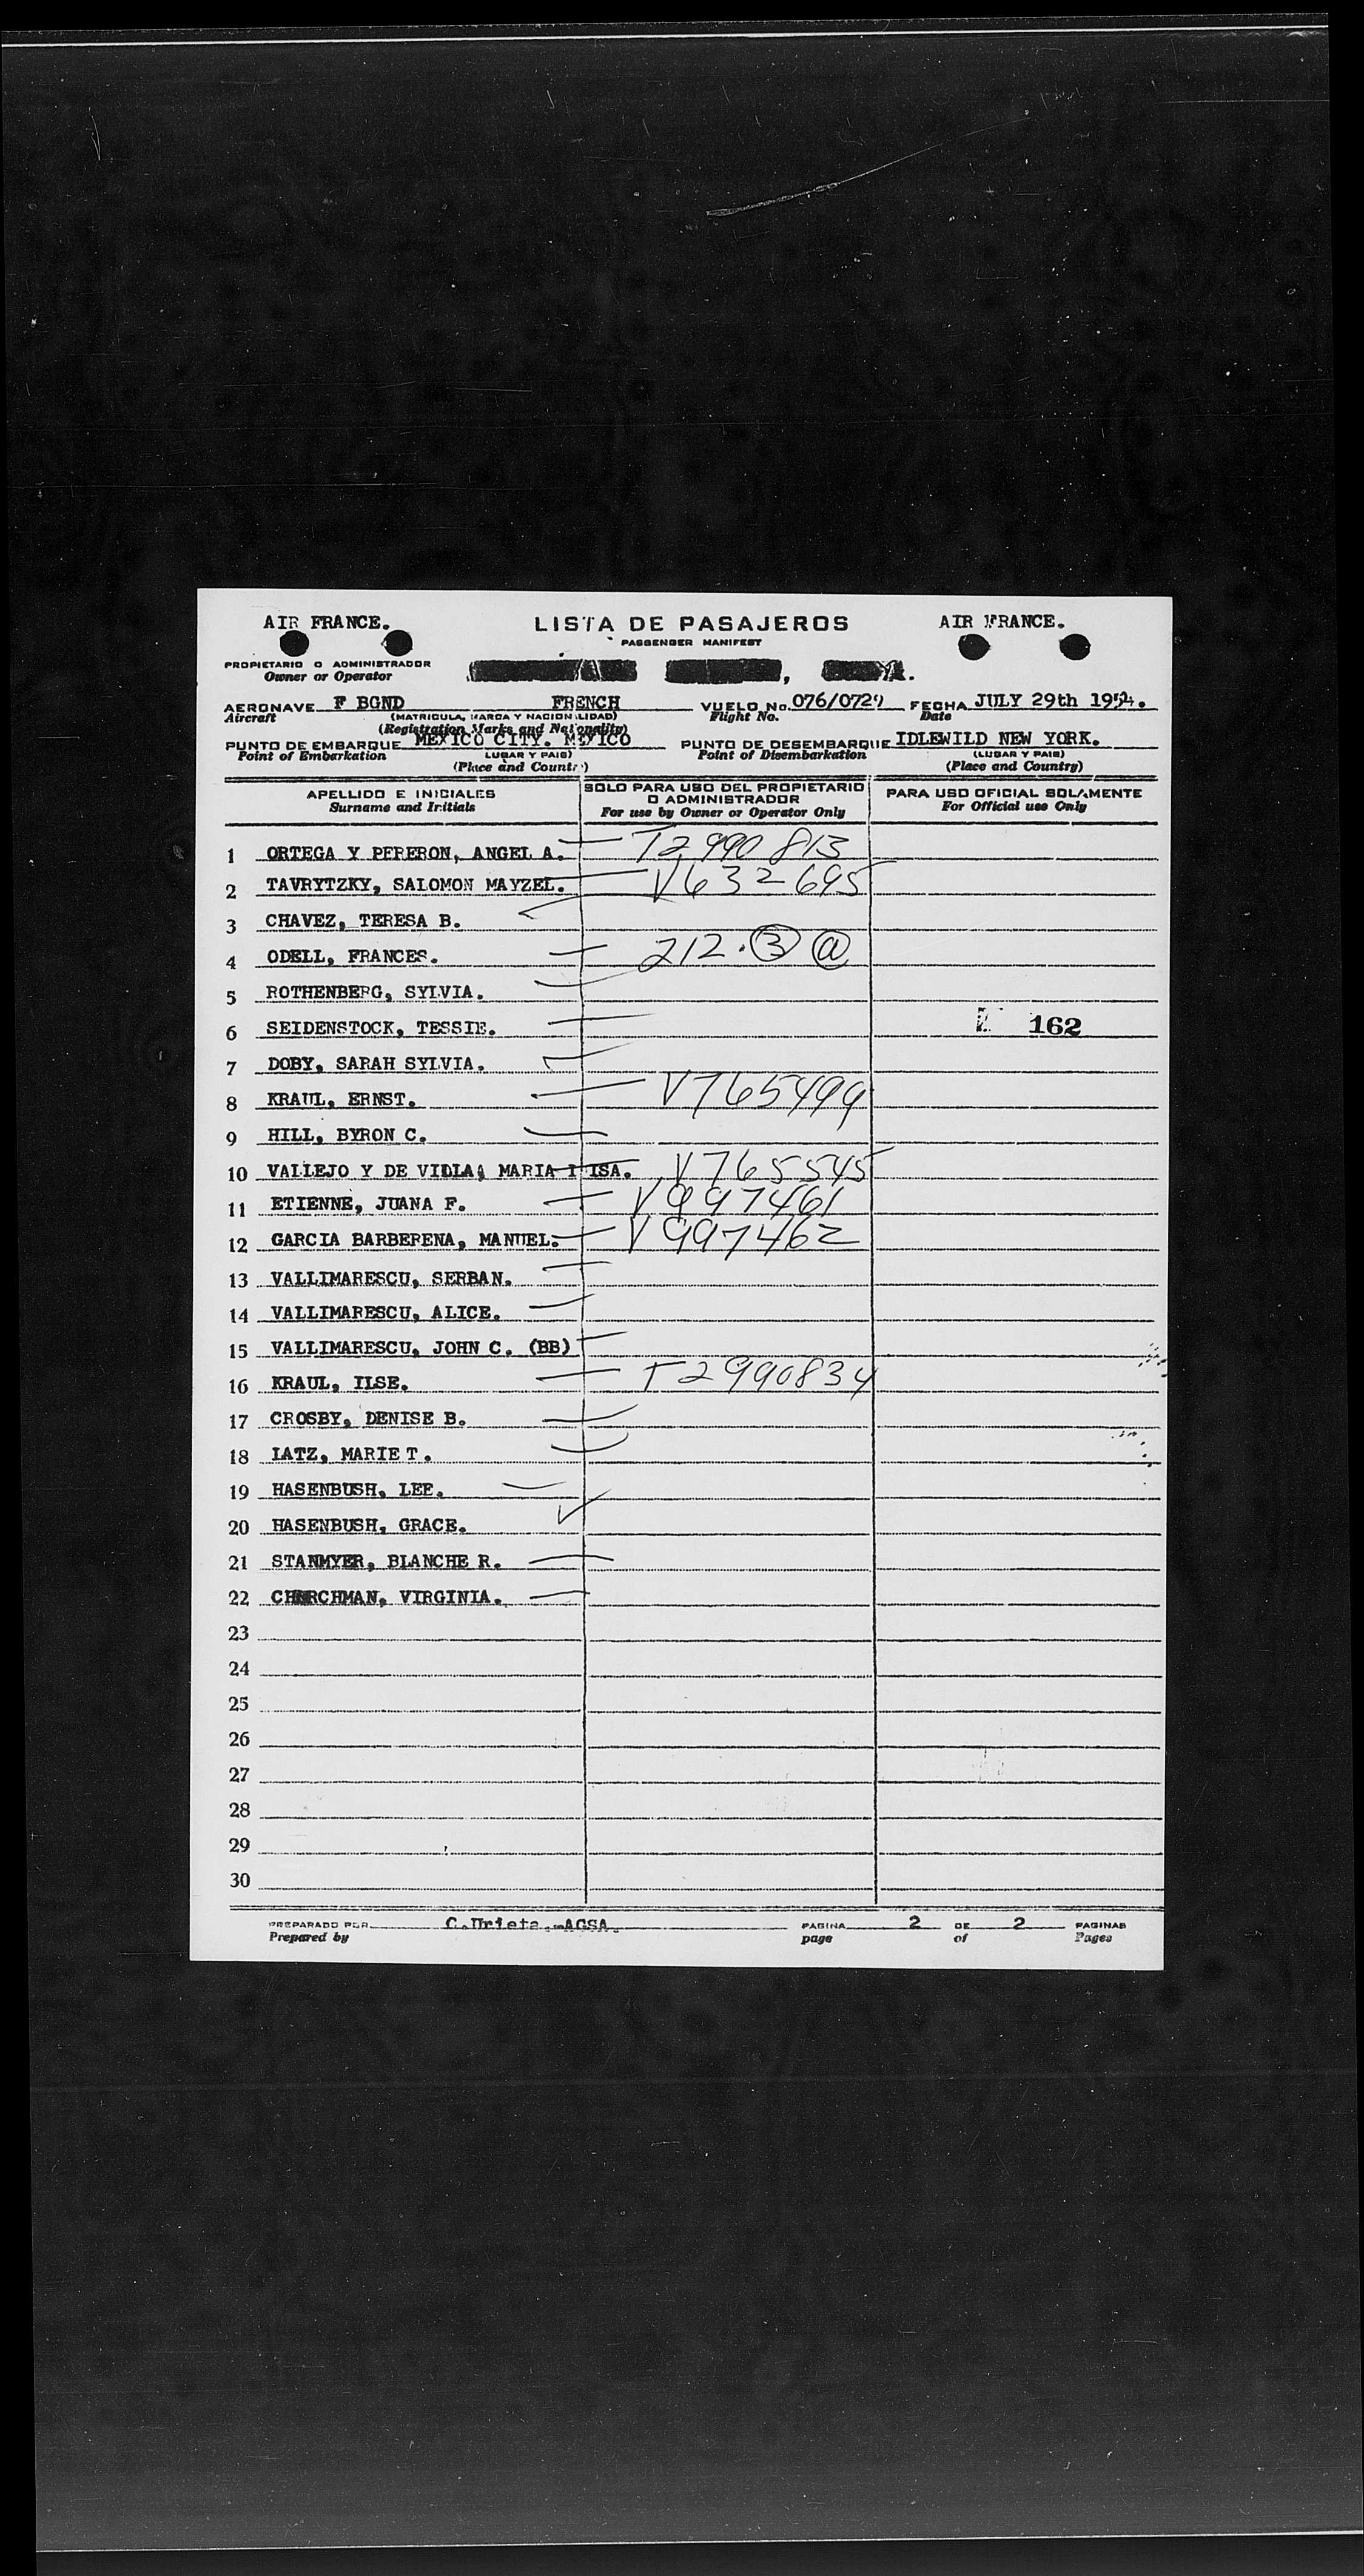 AIR FRANCE. LISTA DE PASAJEROS AIR FRANCE.
PASSENGER MANIFEST
PROPIETARIO O ADMINISTRADOR
Owner or Operator
AERONAVE F BGND FRENCH VUELO No. 076/0729 FECHA JULY 29th 1954.
Aircraft (MATRICULA, MARCA Y NACIONALIDAD) Flight No. Date
(Registration Marks and Nationality)
PUNTO DE EMBARQUE MEXICO CITY. MEXICO PUNTO DE DESEMBARQUE IDLEWILD NEW YORK.
Point of Embarkation LUGAR Y PAIS) Point of Disembarkation (LUGAR Y PAIS)
(Place and Country) (Place and Country)
APELLIDO E INICIALES SOLO PARA USO DEL PROPIETARIO PARA USO OFICIAL SOLAMENTE
Surname and Initials O ADMINISTRADOR For Official use Only
For use by Owner or Operator Only
1 ORTEGA Y PERERON, ANGEL A. T2990813
2 TAVRYTZKY, SALOMON MAYZEL. V632695
3 CHAVEZ, TERESA B.
4 ODELL, FRANCES. 212.3 a
5 ROTHENBERG, SYLVIA.
6 SEIDENSTOCK, TESSIE. 162
7 DOBY, SARAH SYLVIA.
8 KRAUL, ERNST. V765499
9 HILL, BYRON C.
10 VALLEJO Y DE VILLA, MARIA ISA. V765545
11 ETIENNE, JUANA F. V997461
12 GARCIA BARBERENA, MANUEL. V997462
13 VALLIMARESCU, SERBAN.
14 VALLIMARESCU, ALICE.
15 VALLIMARESCU, JOHN C. (BB)
16 KRAUL, ILSE. T2990834
17 CROSBY, DENISE B.
18 LATZ, MARIE T.
19 HASENBUSH, LEE.
20 HASENBUSH, GRACE.
21 STANMYER, BLANCHE R.
22 CHURCHMAN, VIRGINIA.
23
24
25
26
27
28
29
30
PREPARADO POR C.Urieta.-AGSA. PAGINA 2 DE 2 PAGINAS
Prepared by page of Pages